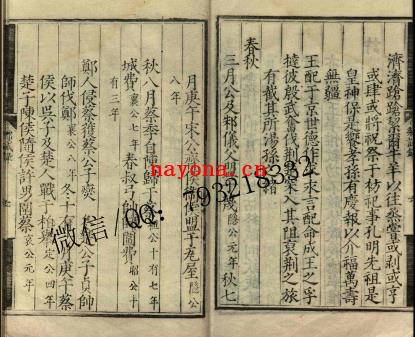 濟濟蹌蹌絜爾牛羊以往烝嘗或剥或亨
或肆或將祝祭于祊祀事孔明先祖是
皇神保是饗孝孫有慶報以介福萬壽
無疆
王配于京世德作求永言配命成王之孚
撻彼殷武奮伐荆楚罙入其阻裒荆之旅
有截其所湯孫之緒
春秋
三月公及邾儀父盟于蔑隱公元年秋七
月庚午宋公齊侯衛侯盟于瓦屋隱公
八年
秋八月蔡季自陳歸于蔡桓公十有七年
城費襄公七年春叔弓帥師圍費昭公十
有三年
鄭人侵蔡獲蔡公子燮公子貞帥
師伐鄭襄公八年冬十有一月庚午蔡
侯以吳子及楚人戰于柏舉定公四年
楚子陳侯隨侯許男圍蔡哀公元年
nayona.cn
微信/QQ: 793218332